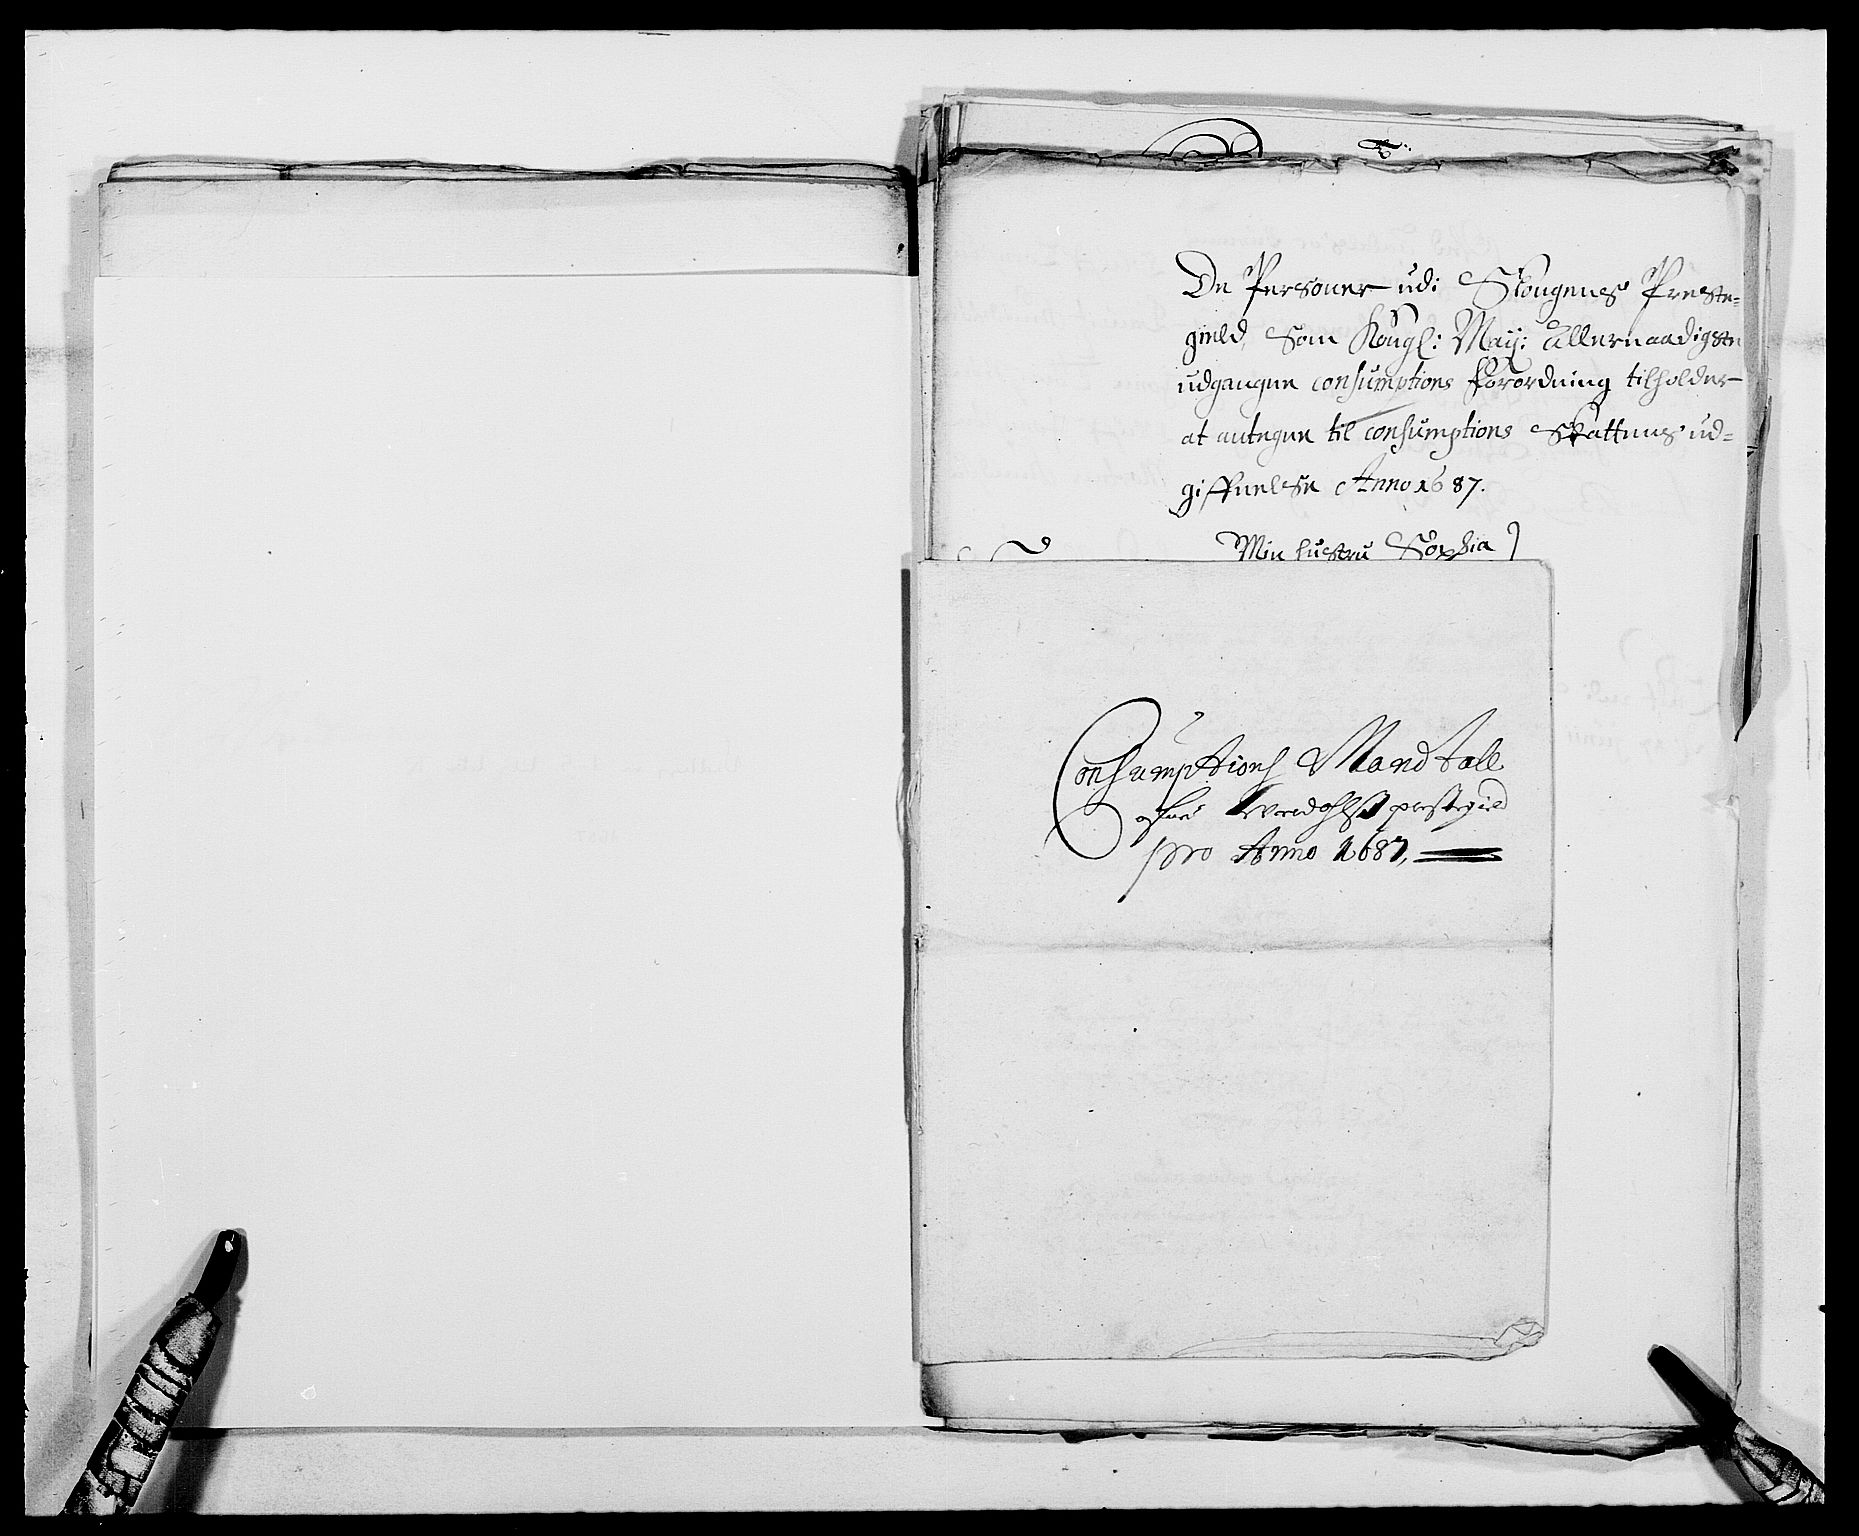 De Personer udi Skougens Preste-
gield, Som Kongl: May: Allernaadigste
udgangne consumptions forordning tilholder
at antegne til consumptions Skattens ud-
giffuelse Anno 1687.
Min hustru Sophia
Consumptions Mandtall
ofuer Werdahls prestegield
pro Anno 1687,